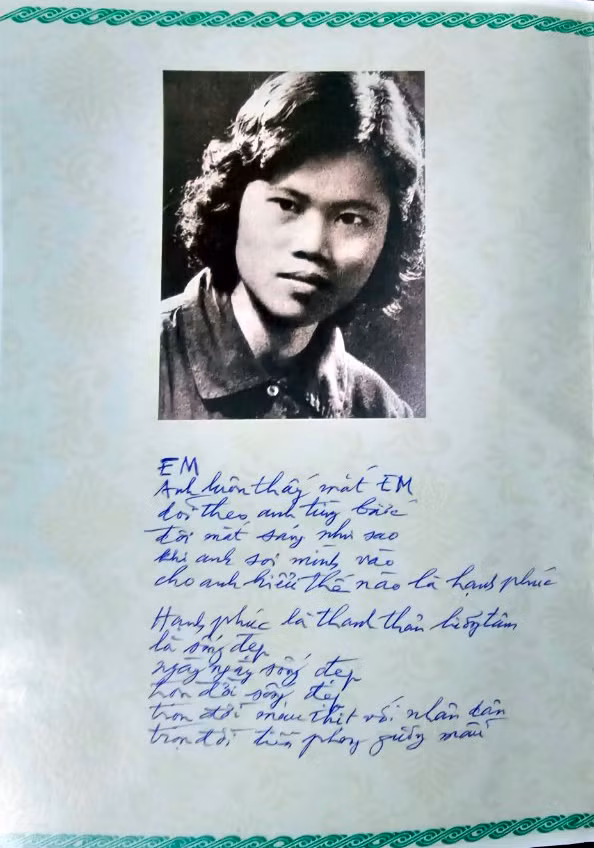 EM
Anh luôn thấy mắt EM
dõi theo anh từng bước
đôi mắt sáng như sao
khi anh soi mình vào
cho anh hiểu thế nào là hạnh phúc
Hạnh phúc là thanh thản lương tâm
là sống đẹp
ngày ngày sống đẹp
trọn đời sống đẹp
trọn đời máu thịt với nhân dân
trọn đời tiền phong gương mẫu